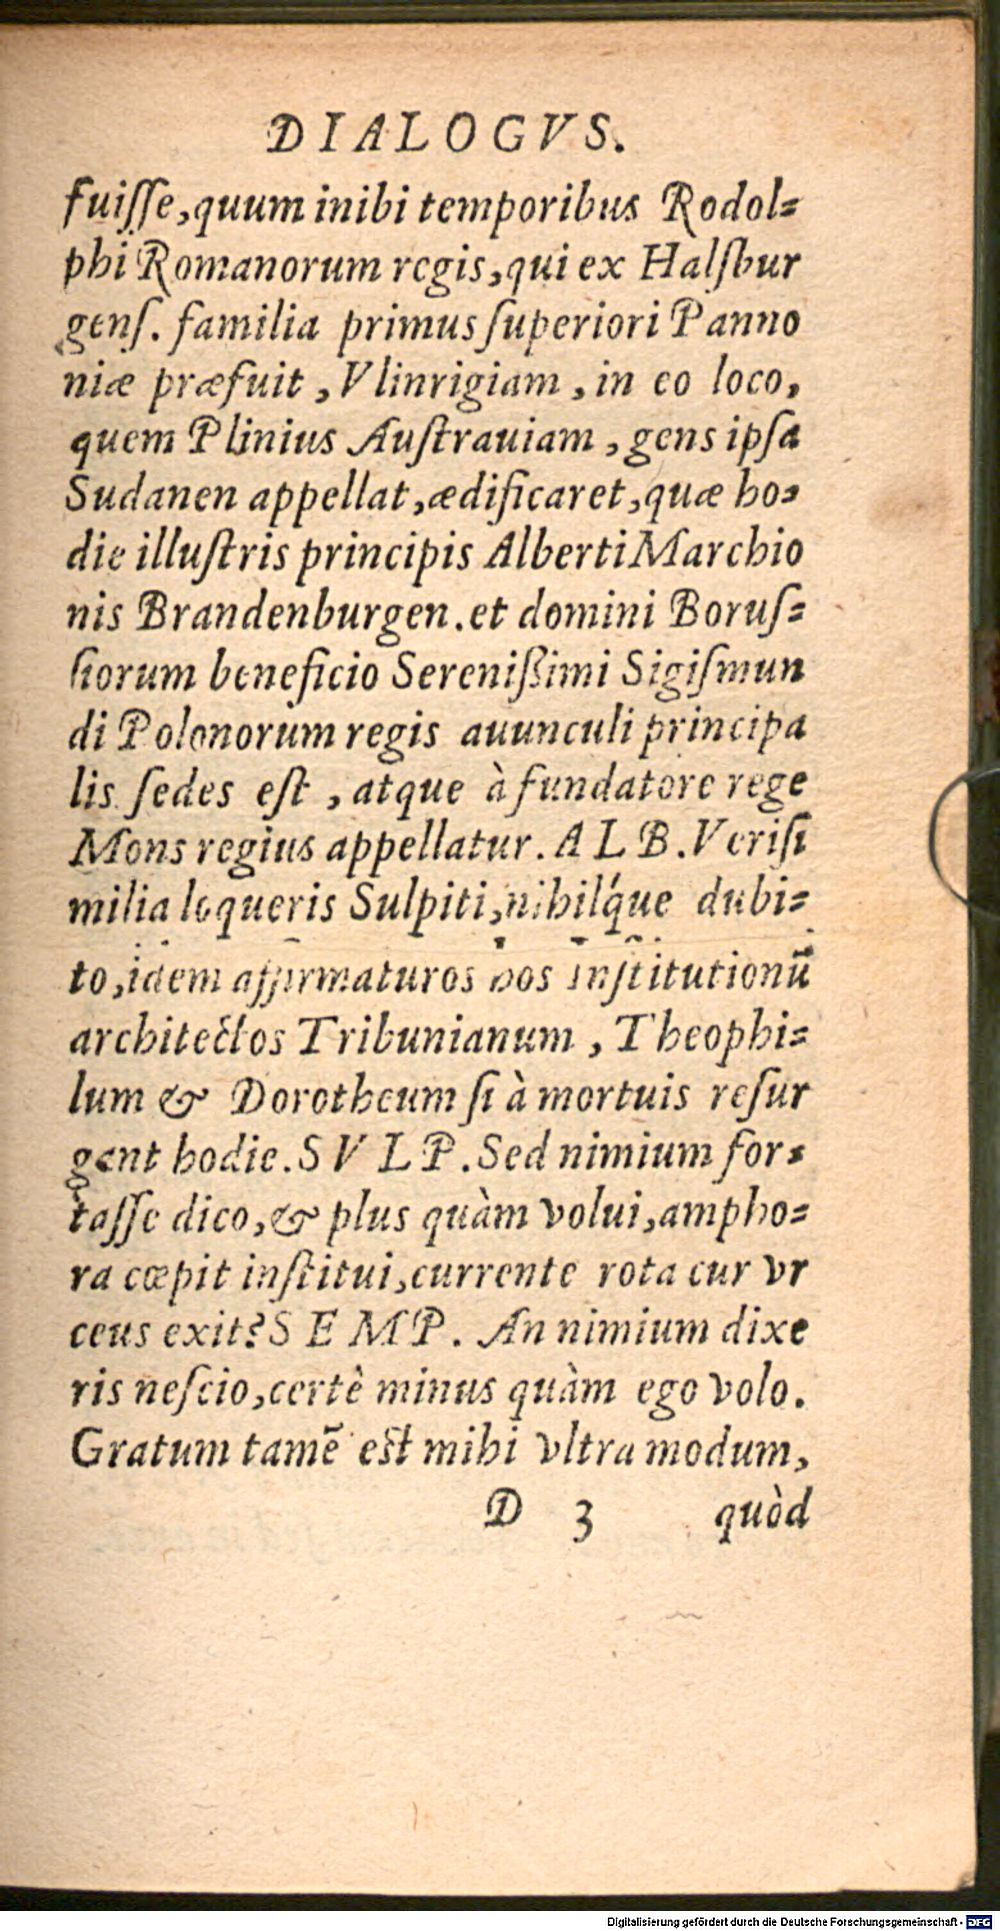 DIALOGVS.
fuiſſe, quum inibi temporibus Rodol⸗
phi Romanorum regis, qui ex Halſbur
genſ. familia primus ſuperiori Panno
niæ præfuit, Vlinrigiam, in eo loco,
quem Plinius Auſtrauiam, gens ipſa
Sudanen appellat, ædificaret, quæ ho⸗
die illuſtris principis Alberti Marchio
nis Brandenburgen. et domini Boruſ⸗
ſiorum beneficio Sereniſſimi Sigiſmun
di Polonorum regis auunculi principa
lis ſedes eſt, atque à fundatore rege
Mons regius appellatur. ALB. Veriſi
milia loqueris Sulpiti, nihilq́ue dubi⸗
to, idem affirmaturos hos Inſtitutionū
architectos Tribunianum, Theophi⸗
lum & Dorotheum ſi à mortuis reſur
gent hodie. SVLP. Sed nimium for⸗
taſſe dico, & plus quàm volui, ampho⸗
ra cœpit inſtitui, currente rota cur vr
ceus exit? SEMP. An nimium dixe
ris neſcio, certè minus quàm ego volo.
Gratum tamē eſt mihi vltra modum,
D 3 quòd
Digitalisierung gefördert durch die Deutsche Forschungsgemeinschaft - DFG